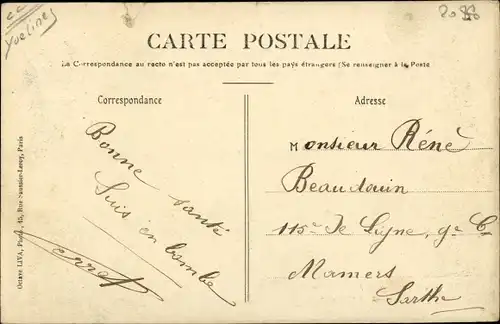 Yvelines
CARTE POSTALE
La Correspondance au recto n'est pas acceptée par tous les pays étrangers (Se renseigner à la Poste
Correspondance
Adresse
Bonne santé
Suis en bombe
Monsieur Réné
Beaudouin
115e de Ligne, 9e Cie
Mamers
Sarthe
Octave LIVA, Photo, 45, Rue
Paris